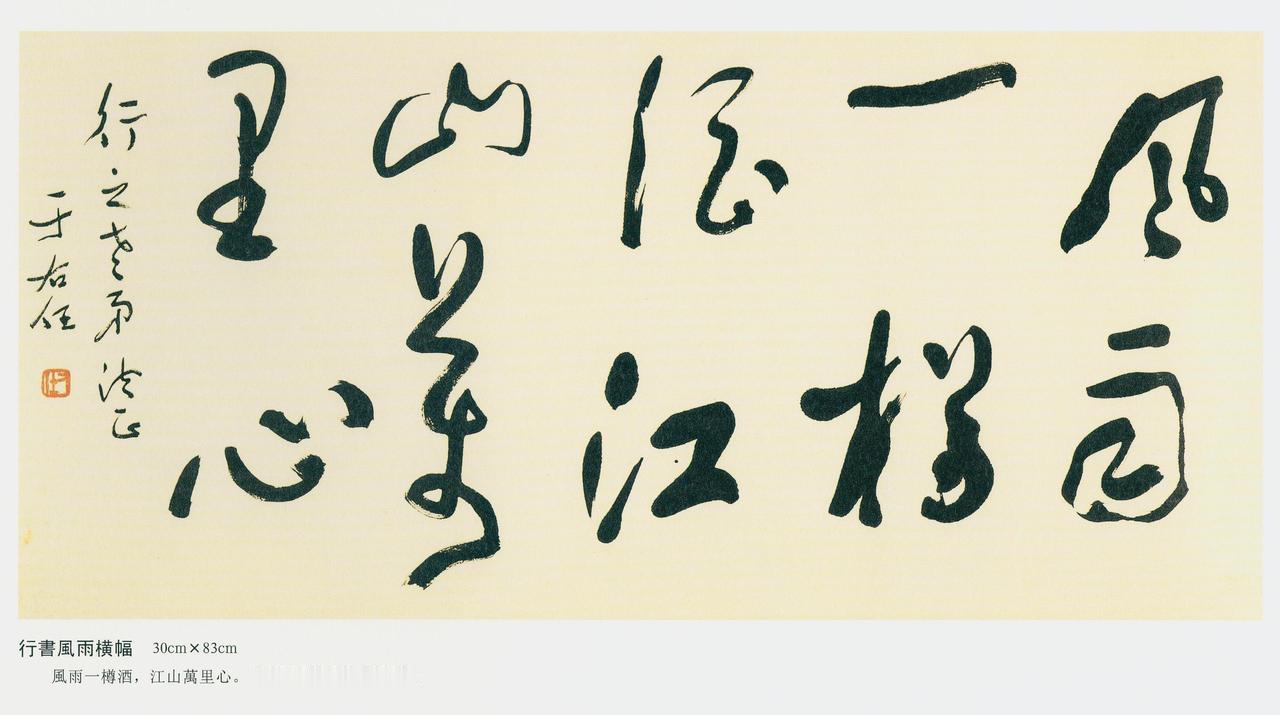 風雨
一樽
酒江
山萬
里心
行之老弟法正
于右任
行書風雨横幅 30cm×83cm
風雨一樽酒，江山萬里心。